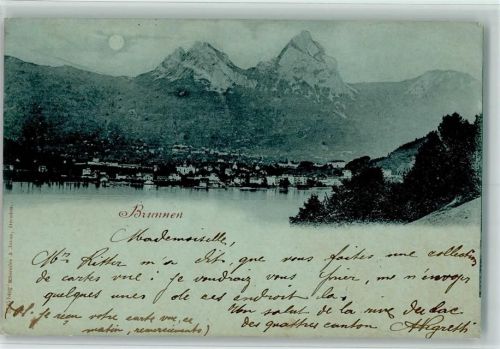 Brunnen
Mademoiselle,
m'a dit, que vous faites une collection
de cartes vue; je voudrais vous prier, me n'envoyer
quelques unes de ces endroit là.
Un salut de la rive du lac
des quattres canton
Je reçu votre carte vue, ce
matin, remerciements)